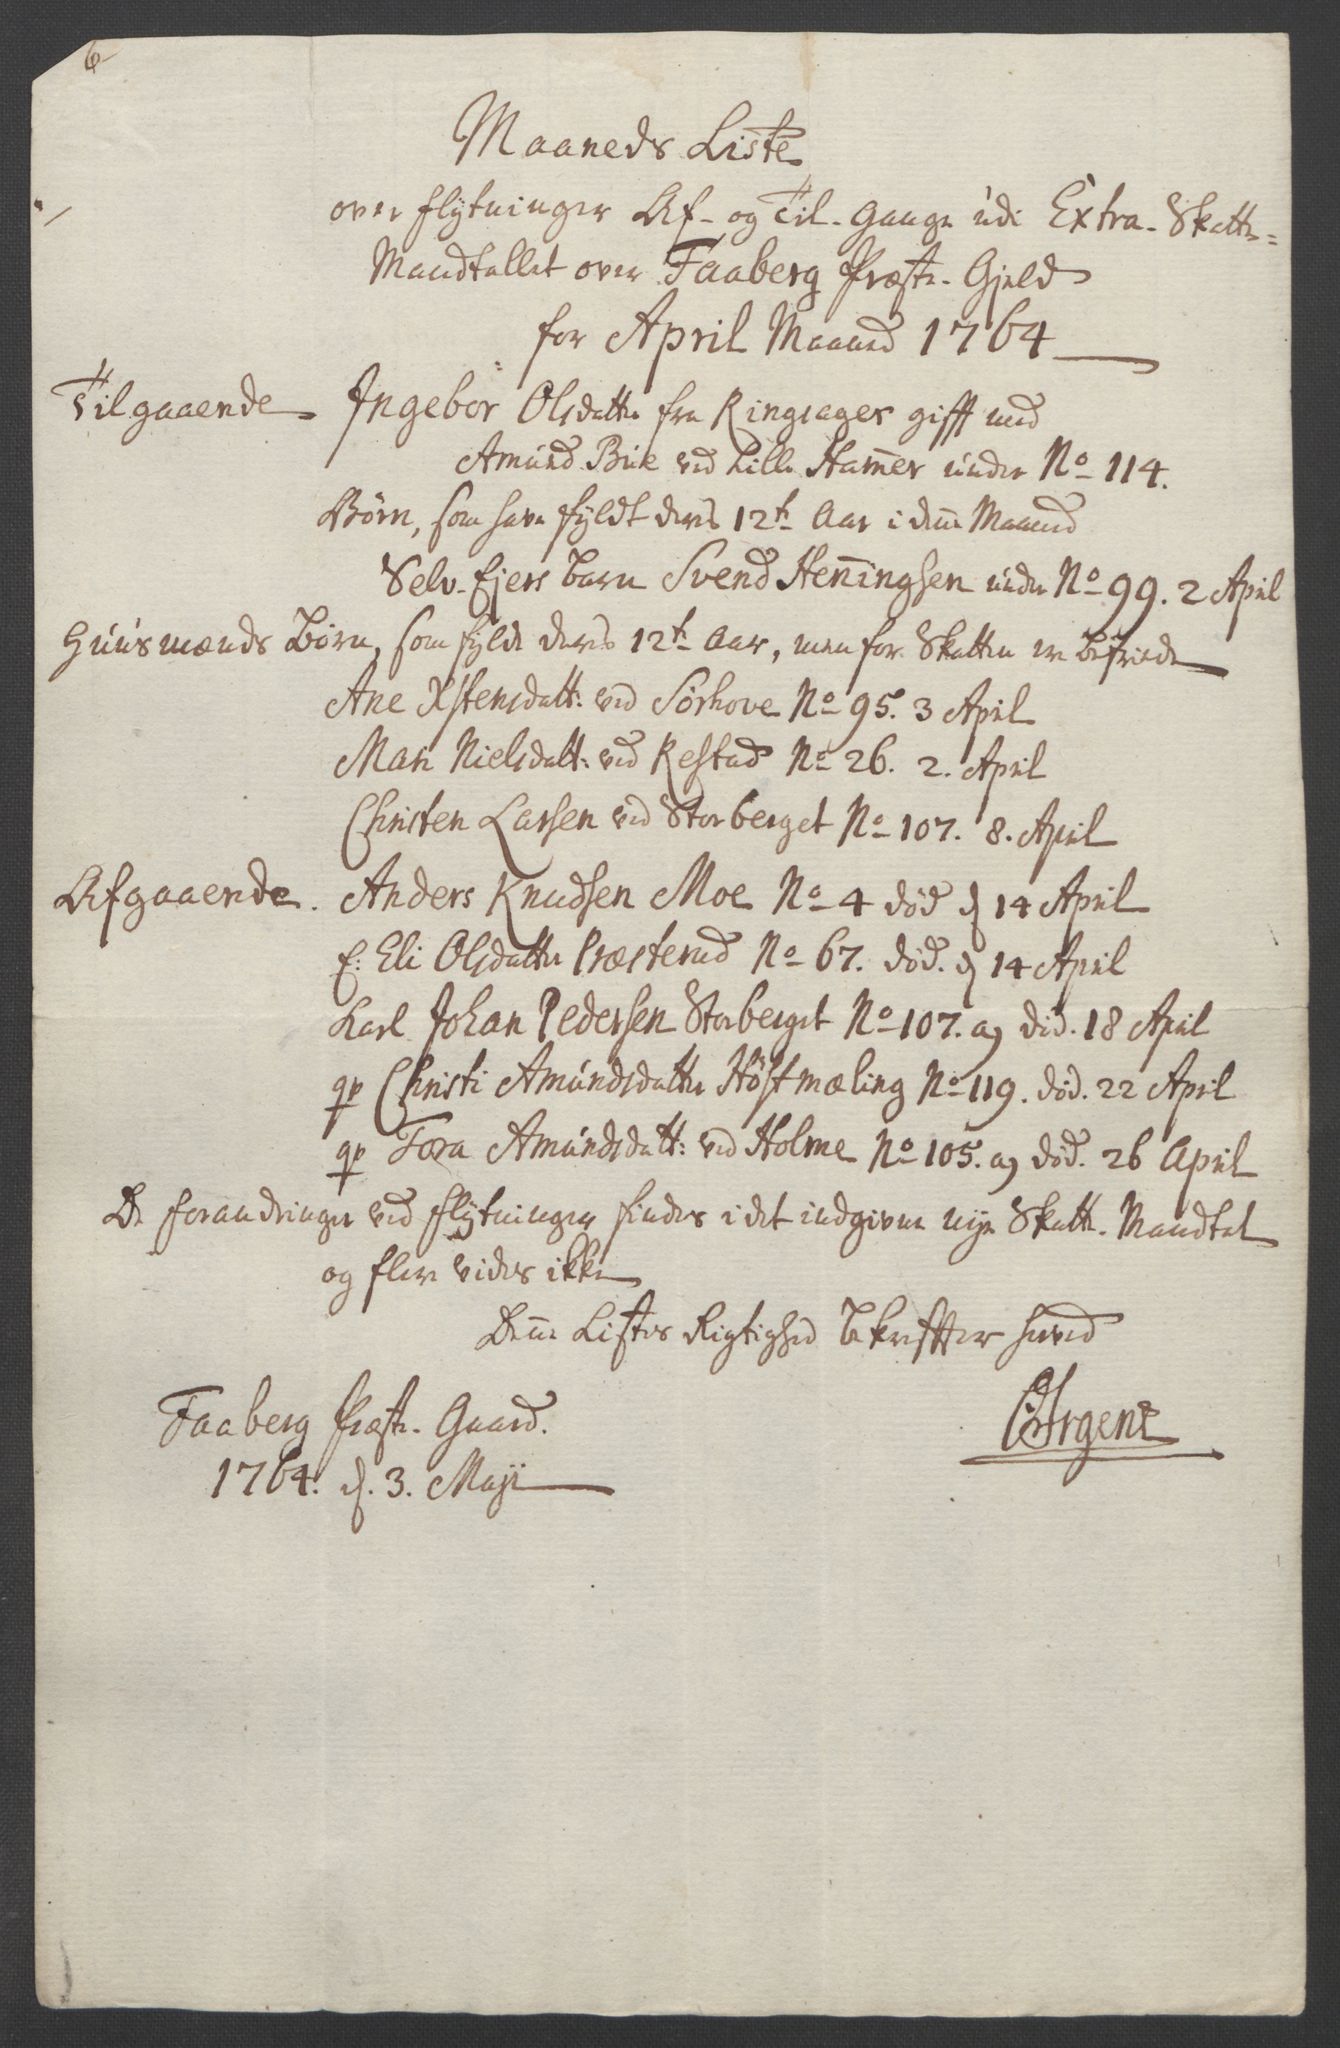 6
Maaneds Liste
over flytninger Af- og Til-Gange udi Extra-Skatte-
Mandtallet over Faaberg Præste-Gjeld
for April Maaned 1764
Tilgaaende Ingebor Olsdatter fra Ringsager gifft med
Amund Bue ved Lille Ham̄er under No 114.
Børn, som have fyldt deres 12te Aar i den̄e Maaned
Selv-Ejers barn Svend Hen̄ingsen under No 99. 2 April
Huusmænds Børn, som fyldt deres 12te Aar, men for Skatten ere befriede
Ane Xstensdatt: ved Sørhove No 95. 3 April
Mari Nielsdatt: ved Restad No 26. 2. April
Christen Larsen ved Storberget No 107. 8. April
Afgaaende. Anders Knudsen Moe No 4 død d 14 April
E: Eli Olsdatter Præsterud No 67. død. d 14 April
Karl Johan Pedersen Storberget No 107. død. 18 April
qp Christi Amundsdatter Høstmæling No 119. død. 22 April
qp Tora Amundsdatt: ved Holme No 105. død. 26 April
De forandringer ved flytninger findes i det indgivne nye Skatte-Mandtal
og flere vides ikke
Den̄e Listes Rigtighed bekreffter herved
Faaberg Præste-Gaard. Argent
1764. d. 3. Maji